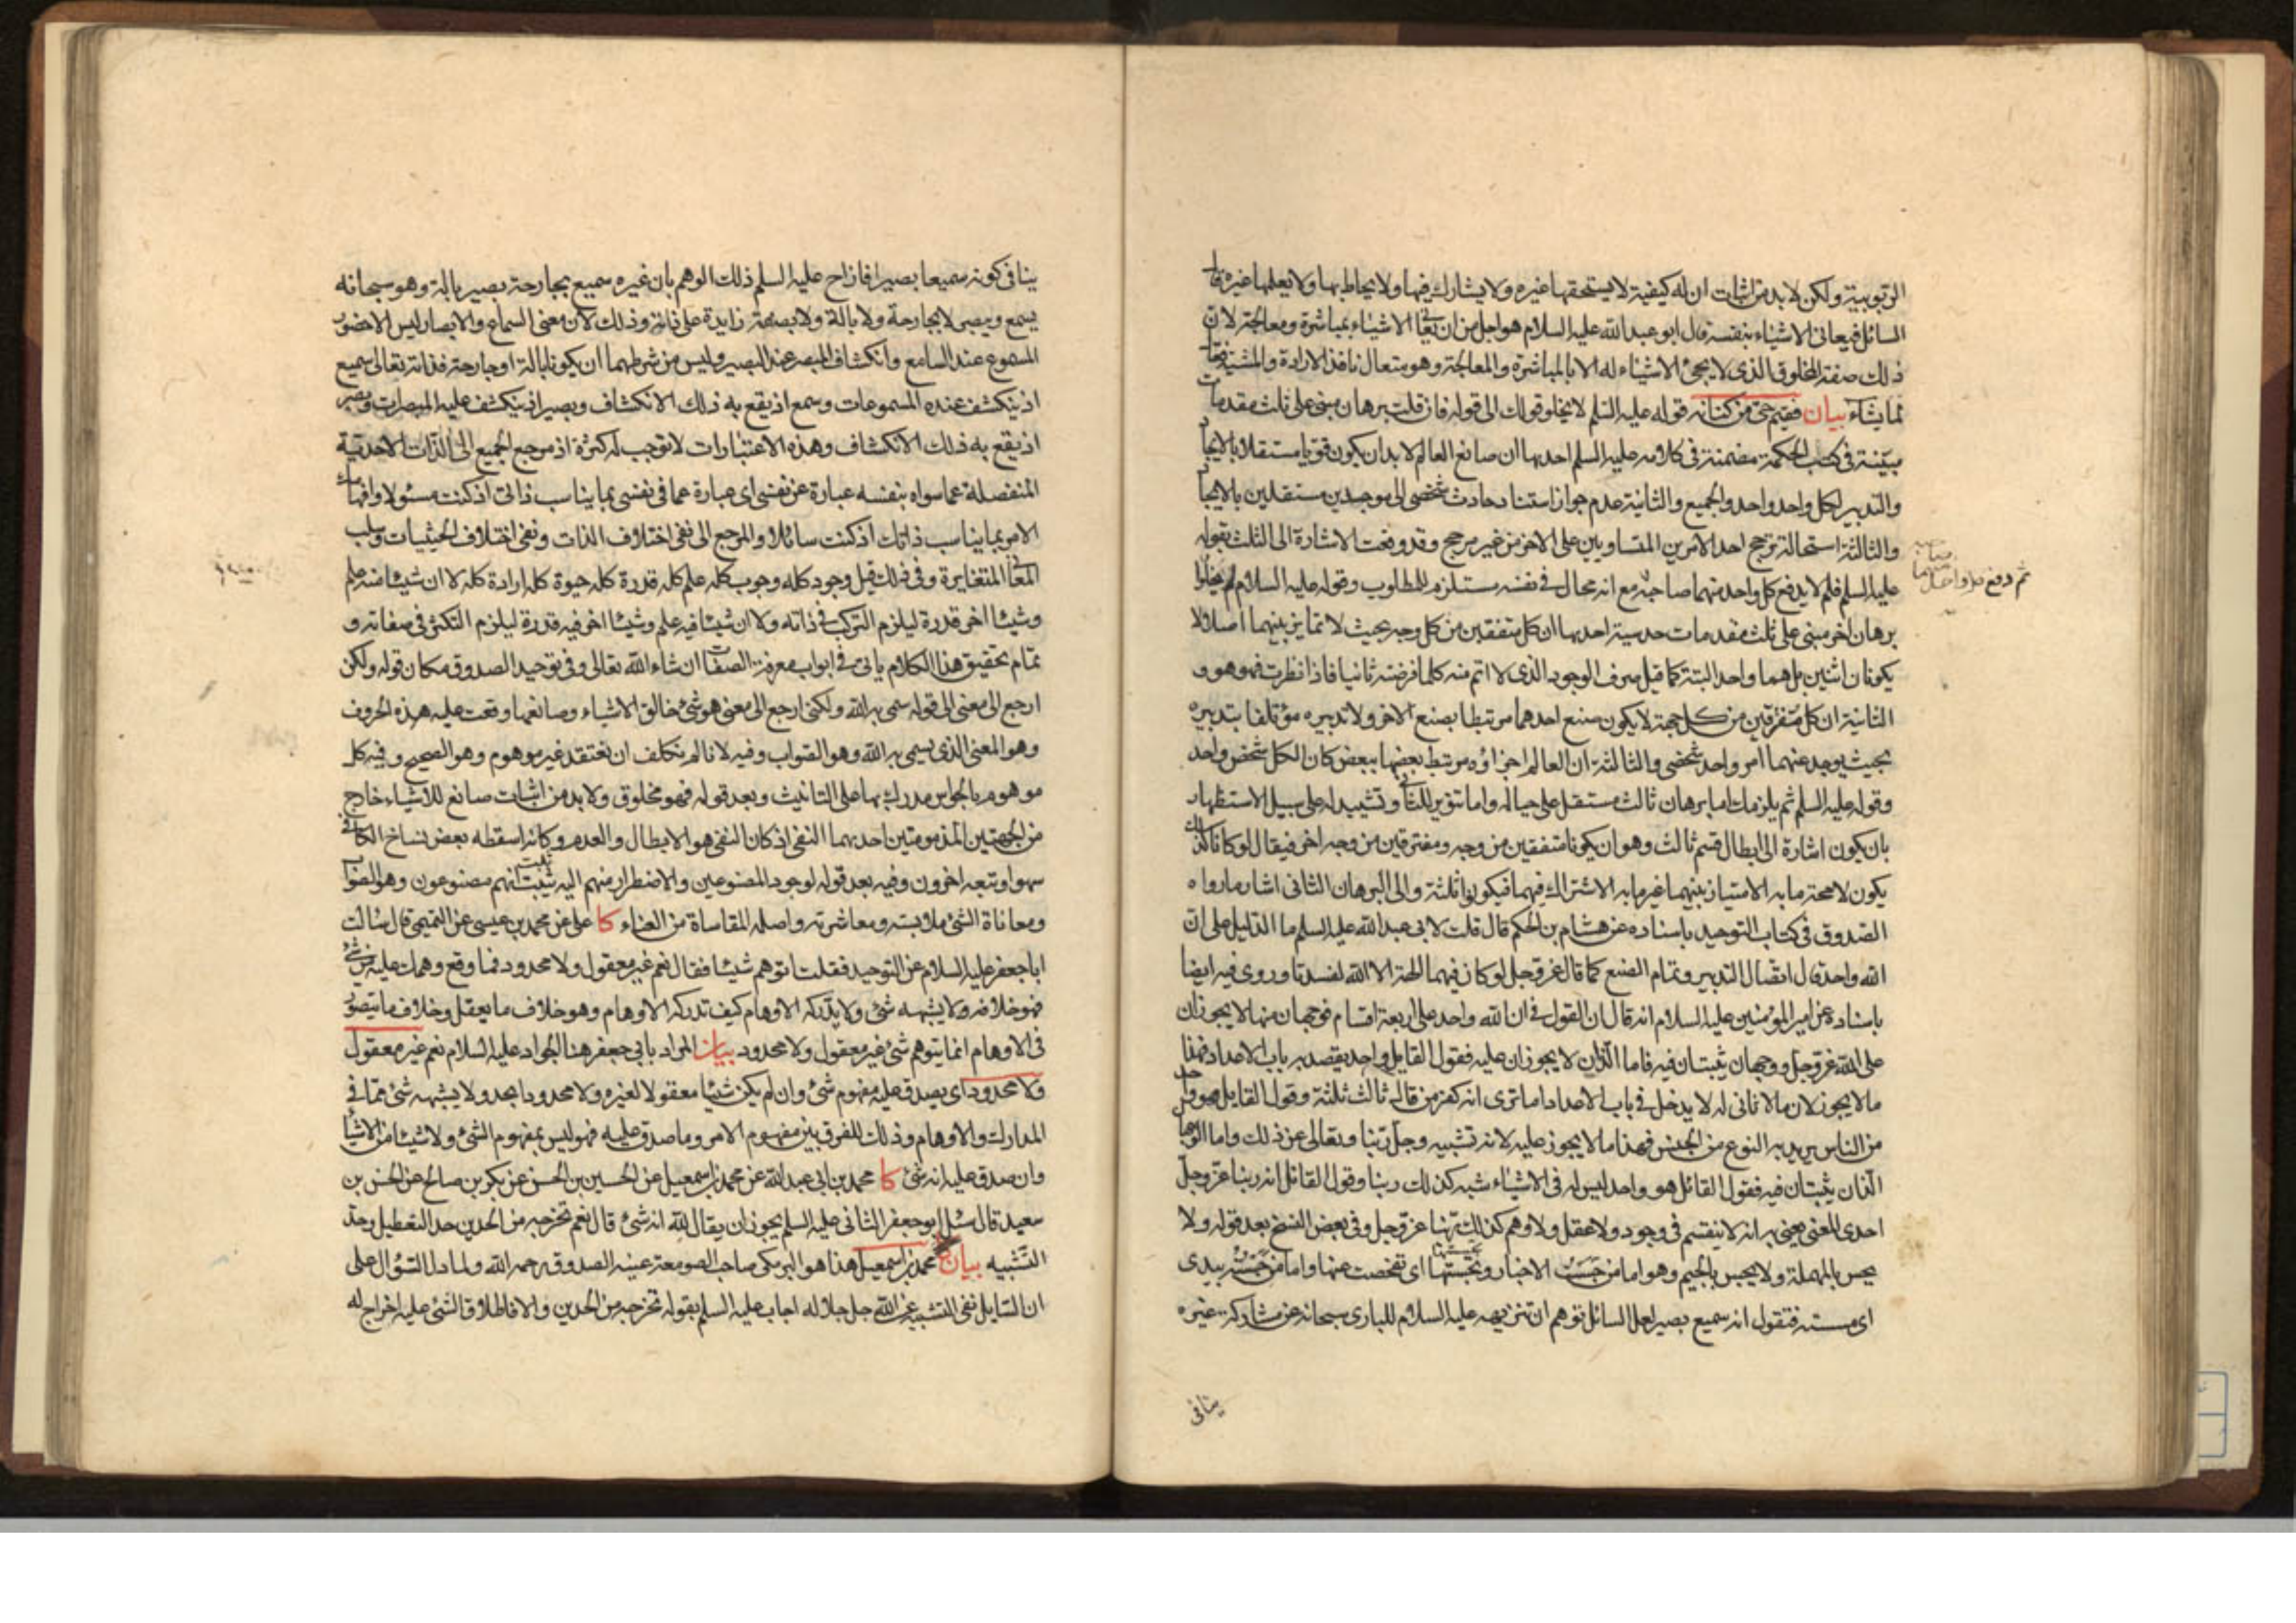 الربوبية ولكن لا بد من اثبات ان له كيفية لا يستحقها غيره ولا يشارك فيها ولا يحاط بها ولا يعلمها غيره قال
السائل فيعانى الاشياء بنفسه قال ابو عبد الله عليه السلام هو اجل من ان يعانى الاشياء بمباشرة ومعالجة لان
ذلك صفة المخلوق الذى لا يجئ الاشياء له الا بالمباشرة والمعالجة وهو متعال نافذ الارادة والمشية فعال
لما يشاء بيان فقيم حتى من كنانه قوله عليه السلم لا يخلو قولك الى قوله فان قلت برهان مبنى على ثلث مقدمات
مبيّنة فى كتب الحكمة مضمنة فى كلامه عليه السلم احديها ان صانع العالم لا بد ان يكون قويا مستقلا بالايجاد
والتدبير لكل واحد واحد والجميع والثانية عدم جواز استناد حادث شخصى الى موجدين مستقلين بالايجاد
والثالثة استحالة ترجح احد الامرين المتساويين على الاخر من غير مرجح وقد وقعت الاشارة الى الثلث بقوله
عليه السلم فلم لا يدفع كل واحد منهما صاحبه مع انه محال فى نفسه مستلزم للمطلوب وقوله عليه السلام لم يخلوا
ثم دفع كل واحد منهما صاحبه
برهان اخر مبنى على ثلث مقدمات حدسية احديها ان كل متفقين من كل وجه بحيث لا تمايز بينهما اصلا لا
يكونان اثنين بل هما واحد البتة كما قيل صرف الوجود الذى لا اتم منه كلما فرضته ثانيا فاذا نظرت فهو هو و
الثانية ان كل متفرقين من كل جهة لا يكون صنع احدهما مرتبطا بصنع الاخر ولا تدبيره مؤتلفا بتدبيره
بحيث يوجد عنهما امر واحد شخصى والثالثة ان العالم اجزاؤه مرتبط بعضها ببعض كان الكل شخص واحد
وقوله عليه السلم ثم يلزمك اما برهان ثالث مستقل على حياله واما تنوير للثانى وتشييد له على سبيل الاستظهار
بان يكون اشارة الى ابطال قسم ثالث وهو ان يكونا متفقين من وجه ومفترقين من وجه اخر فيقال لو كانا كذلك
يكون لا محة ما به الامتياز بينهما غير ما به الاشتراك فيهما فيكونوا ثلثة والى البرهان الثانى اشار ما رواه
الصدوق فى كتاب التوحيد باسناده عن هشام بن الحكم قال قلت لابى عبد الله عليه السلم ما الدليل على ان
الله واحد قال اتصال التدبير وتمام الصنع كما قال عز وجل لو كان فيهما الهة الا الله لفسدتا وروى فيه ايضا
باسناده عن امير المؤمنين عليه السلام انه قال ان القول فى ان الله واحد على اربعة اقسام فوجهان منها لا يجوزان
على الله عز وجل ووجهان يثبتان فيه فاما اللذان لا يجوزان عليه فقول القايل واحد يقصد به باب الاعداد فهذا
ما لا يجوز لان ما لا ثانى له لا يدخل فى باب الاعداد اما ترى انه كفر من قال ثالث ثلثة وقول القايل هو واحد
من الناس يريد به النوع من الجنس فهذا ما لا يجوز عليه لانه تشبيه وجل ربنا وتعالى عن ذلك واما الوجهان
الذان يثبتان فيه فقول القائل هو واحد ليس له فى الاشياء شبه كذلك ربنا وقول القائل انه ربنا عز وجل
احدى المعنى يعنى به انه لا ينقسم فى وجود ولا عقل ولا وهم كذلك ربنا عز وجل وفى بعض النسخ بعد قوله ولا
يحس بالمهملة ولا يجس بالجيم وهو اما من جسست الاخبار وتجسستها اى تفحصت عنها واما من جسسته بيدى
اى مسسته فتقول انه سميع بصير لعل السائل توهم ان تنزيهه عليه السلام للبارى سبحانه عن مشاركة غيره
ينافى
ينافى كونه سميعا بصيرا فازاح عليه السلم ذلك الوهم بان غيره سميع بجارحة بصير بالة وهو سبحانه
يسمع ويبصر لا بجارحة ولا بالة ولا بصفة زايدة على ذاته وذلك لان معنى السماع والابصار ليس الا حضور
المسموع عند السامع وانكشاف المبصر عند البصير وليس من شرطهما ان يكونا بالة او جارحة فذاته تعالى سميع
اذ ينكشف عنده المسموعات وسمع اذ يقع به ذلك الانكشاف وبصير اذ ينكشف عليه المبصرات وبصر
اذ يقع به ذلك الانكشاف وهذه الاعتبارات لا توجب له كثرة اذ مرجع الجميع الى الذات الاحدية
المنفصلة عما سواه بنفسه عبارة عن نفسى اى عبارة عما فى نفسى بما يناسب ذاتى اذ كنت مسئولا وافهاما
الامر بما يناسب ذاتك اذ كنت سائلا والمرجع الى نفى اختلاف الذات ونفى اختلاف الحيثيات وسلب
المعانى المتغايرة وفى ذلك قيل وجود كله وجوب كله علم كله قدرة كله حيوة كله ارادة كله لا ان شيئا منه علم
وشيئا اخر قدرة ليلزم التركب فى ذاته ولا ان شيئا فيه علم وشيئا اخر فيه قدرة ليلزم التكثر فى صفاته و
تمام تحقيق هذا الكلام ياتى فى ابواب معرفة الصفات ان شاء الله تعالى وفى توحيد الصدوق مكان قوله ولكن
ارجع الى معنى الى قوله سمى به الله ولكنى ارجع الى معنى هو شئ خالق الاشياء وصانعها وقعت عليه هذه الحروف
وهو المعنى الذى يسمى به الله وهو الصواب وفيه لانا لم نكلف ان نعتقد غير موهوم وهو الصحيح وفيه كل
موهوم بالحواس مدرك بها على التانيث وبعد قوله فهو مخلوق ولا بد من اثبات صانع للاشياء خارج
من الجهتين المذمومتين احديهما النفى اذ كان النفى هو الابطال والعدم وكانه اسقطه بعض نساخ الكافى
سهوا وتبعه اخرون وفيه بعد قوله لوجود المصنوعين والاضطرار منهم اليه ثبت انهم مصنوعون وهو الصواب
ومعاناة الشئ ملابسته ومعاشرته واصله المقاساة من العناء كا على عن محمد بن عيسى عن التميمى قال سالت
ابا جعفر عليه السلام عن التوحيد فقلت اتوهم شيئا فقال نعم غير معقول ولا محدود فما وقع وهمك عليه من شئ
فهو خلافه ولا يشبهه شئ ولا يدركه الاوهام كيف تدركه الاوهام وهو خلاف ما يعقل وخلاف ما يتصور
فى الاوهام انما يتوهم شئ غير معقول ولا محدود بيان المراد بابى جعفر هنا الجواد عليه السلام نعم غير معقول
ولا محدود اى يصدق عليه مفهوم شئ وان لم يكن شيئا معقولا لغيره ولا محدودا بحد ولا يشبهه شئ مما فى
المدارك والاوهام وذلك للفرق بين مفهوم الامر وما صدق عليه فهو ليس بمفهوم الشئ ولا شيئا من الاشياء
وان صدق عليه انه شئ كا محمد بن ابى عبد الله عن محمد بن اسمعيل عن الحسين بن الحسن عن بكر بن صالح عن الحسن بن
سعيد قال سئل ابو جعفر الثانى عليه السلم يجوز ان يقال لله انه شئ قال نعم تخرجه من الحدين حد التعطيل وحد
التشبيه بيان محمد بن اسمعيل هذا هو البرمكى صاحب الصومعة عينه الصدوق رحمه الله ولما دل السؤال على
ان السايل نفى التشبيه عن الله جل جلاله اجاب عليه السلم بقوله تخرجه من الحدين والا فاطلاق الشئ عليه اخراج له